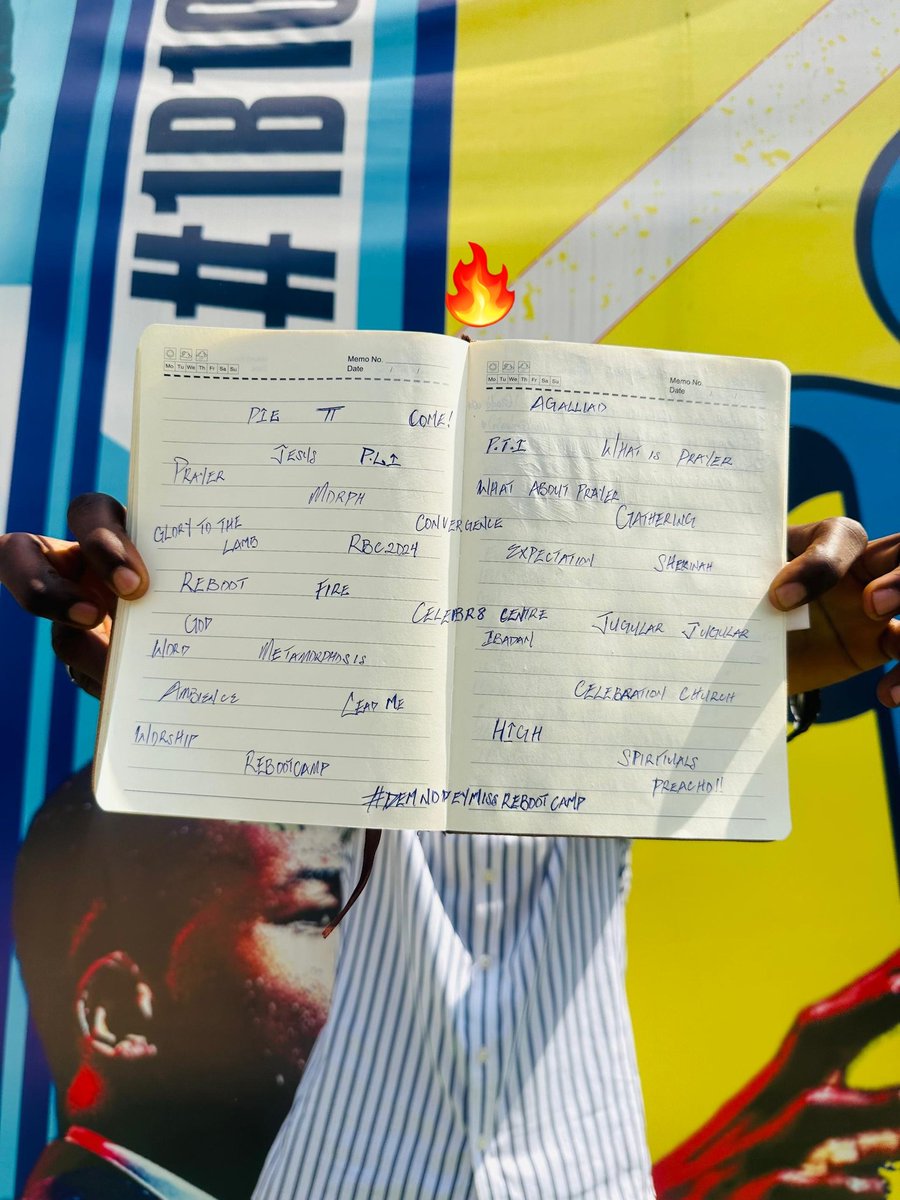 #1B1G
Memo No.
Date / /
Mo Tu We Th Fr Sa Su
PIE π COME!
JESUS P.L.I
PRAYER
MORPH
GLORY TO THE
LAMB
RBC 2024
REBOOT FIRE
GOD
WORD METAMORPHOSIS
AMBIENCE LEAD ME
WORSHIP
REBOOTCAMP
CONVERGENCE
CELEBR8 CENTRE
IBADAN
#DEMNODEYMISSREBOOTCAMP
Memo No.
Date / /
Mo Tu We Th Fr Sa Su
AGALLIAO
P.T.I WHAT IS PRAYER
WHAT ABOUT PRAYER
GATHERING
EXPECTATION SHEKINAH
JUGULAR JUGULAR
CELEBRATION CHURCH
HIGH
SPIRITUALS
PREACHO!!